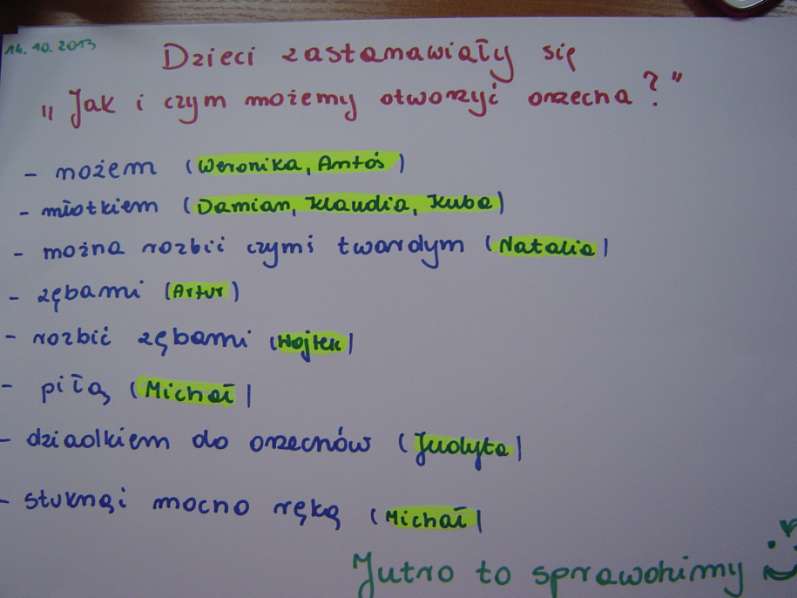 14.10.2013
Dzieci zastanawiały się
„Jak i czym możemy otworzyć orzecha?"
- możem (Weronika, Antoś)
- młotkiem (Damian, Klaudia, Kuba)
- można rozbić czymś twardym (Natalia)
- zębami (Artur)
- rozbić zębami (Wojtek)
- piłą (Michał)
- dziadkiem do orzechów (Judyta)
- stuknąć mocno ręką (Michał)
Jutro to sprawdzimy